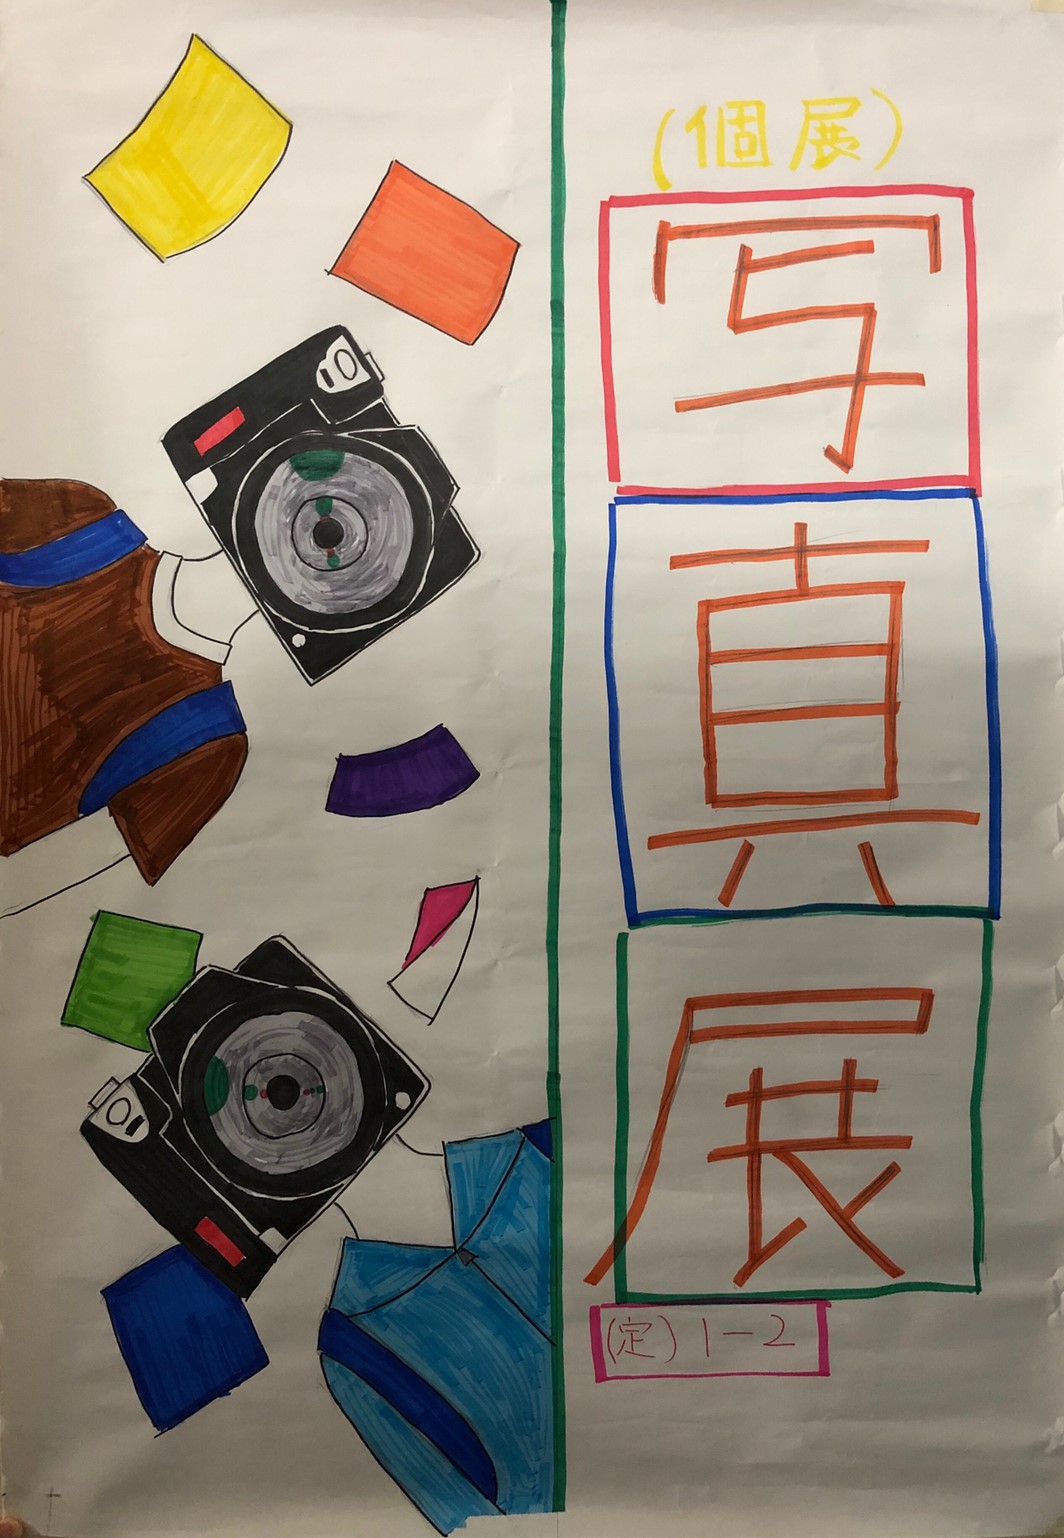 (個展)
写真展
(定)1-2